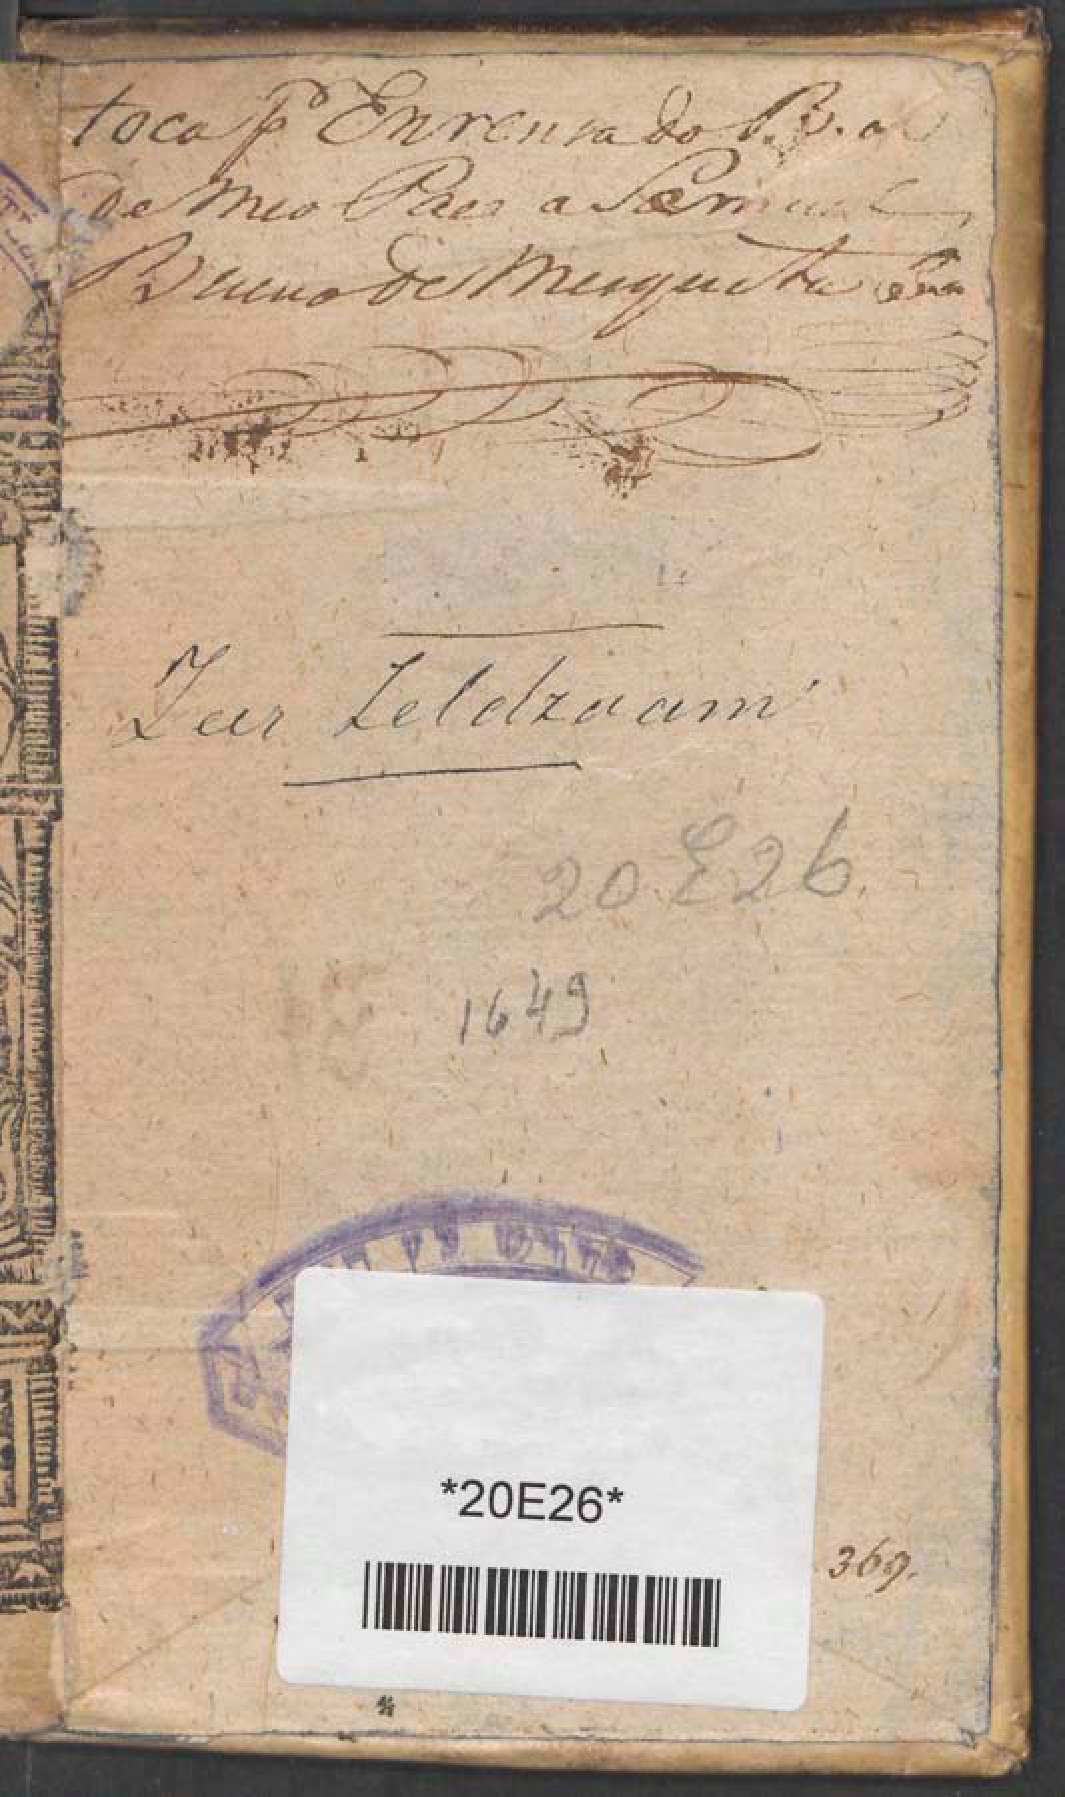 toca p Enrensa do B.B. a
de Meo Pae a Samuel
Bueno de Mesquita
Zeer Zeldzaam
20 E 26
1649
*20E26*
369.